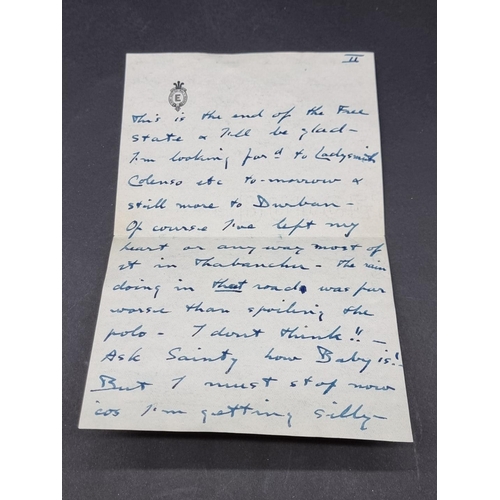 II
E
This is the end of the Free
state & I'll be glad –
I'm looking for'd to Ladysmith
Colenso etc to-morrow &
still more to Durban –
Of course I've left my
heart or any way most of
it in Thabanchu – The rain
doing in that road was far
worse than spoiling the
polo – I don't think!! –
Ask Sainty how Baby is!!
But I must stop now
'cos I'm getting silly –